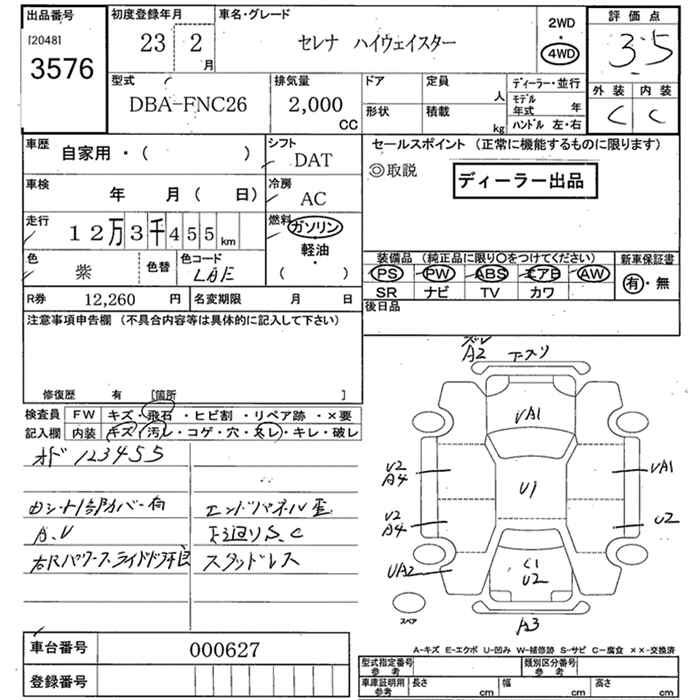 出品番号
[2048]
3576
初度登録年月
23 2
月
車名・グレード
セレナ ハイウェイスター
2WD
・
4WD
評価点
3.5
外装 内装
C C
型式
DBA-FNC26
排気量
2,000
CC
ドア 定員
人
形状 積載
kg
ディーラー・並行
モデル
年式 年
ハンドル 左・右
車歴
自家用・( )
シフト
DAT
車検
年 月( 日)
冷房
AC
走行
12万3千455km
燃料
ガソリン
軽油
・
( )
色
紫
色替
色コード
LAE
R券 12,260 円
名変期限 月 日
セールスポイント (正常に機能するものに限ります)
◎取説
ディーラー出品
装備品 (純正品に限り〇をつけてください)
PS PW ABS エアB AW
SR ナビ TV カワ
新車保証書
有・無
後日品
注意事項申告欄 (不具合内容等は具体的に記入して下さい)
修復歴 有 [箇所 ]
検査員
記入欄
FW キズ・飛石・ヒビ割・リペア跡・×要
内装 キズ・汚レ・コゲ・穴・スレ・キレ・破レ
オド 123455
エンドパネル歪
A.V
下廻りS,C
右Rパワースライドドア不良
スタッドレス
A2
VA1
U2
A4
U1
UA1
U2
A4
U2
UA2
C1
U2
A3
スペア
A-キズ E-エクボ U-凹み W-補修跡 S-サビ C-腐食 ××-交換済
車台番号 000627
登録番号
型式指定番号
参考
類別区分番号
参考
車庫証明用
参考
長さ cm 幅 cm 高さ cm